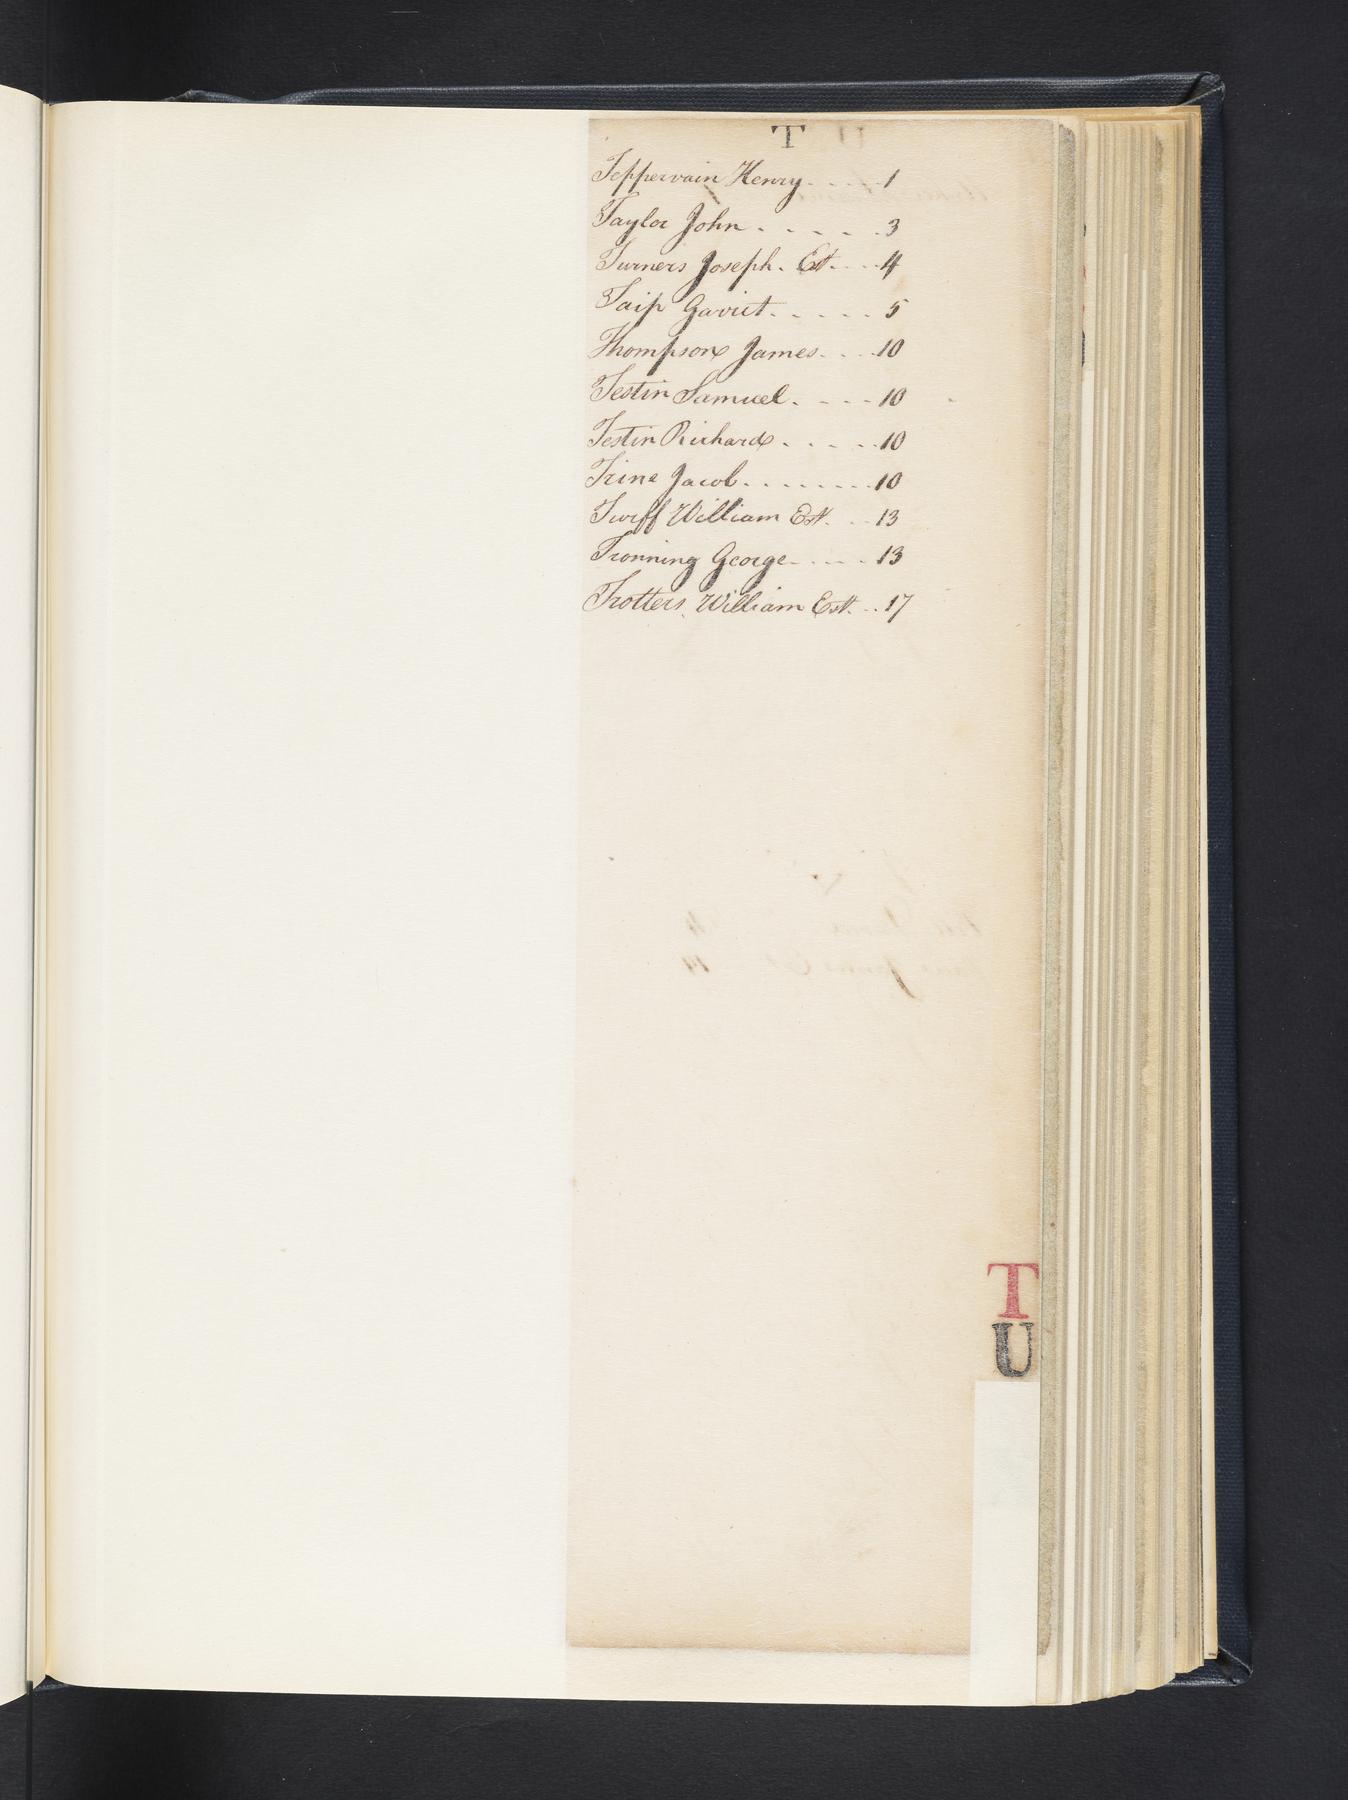 T
Teppervain Henry. . . . . 1
Taylor John . . . . . . 3
Turners Joseph. Est. . . . 4
Taip Garrit. . . . . . 5
Thompson James. . . . 10
Testin Samuel. . . . 10
Testin Richard . . . . . 10
Trine Jacob. . . . . . . . . 10
Twiff William Est. . . 13
Tronning George. . . . . 13
Trotters, William Est. . . 17
T
U